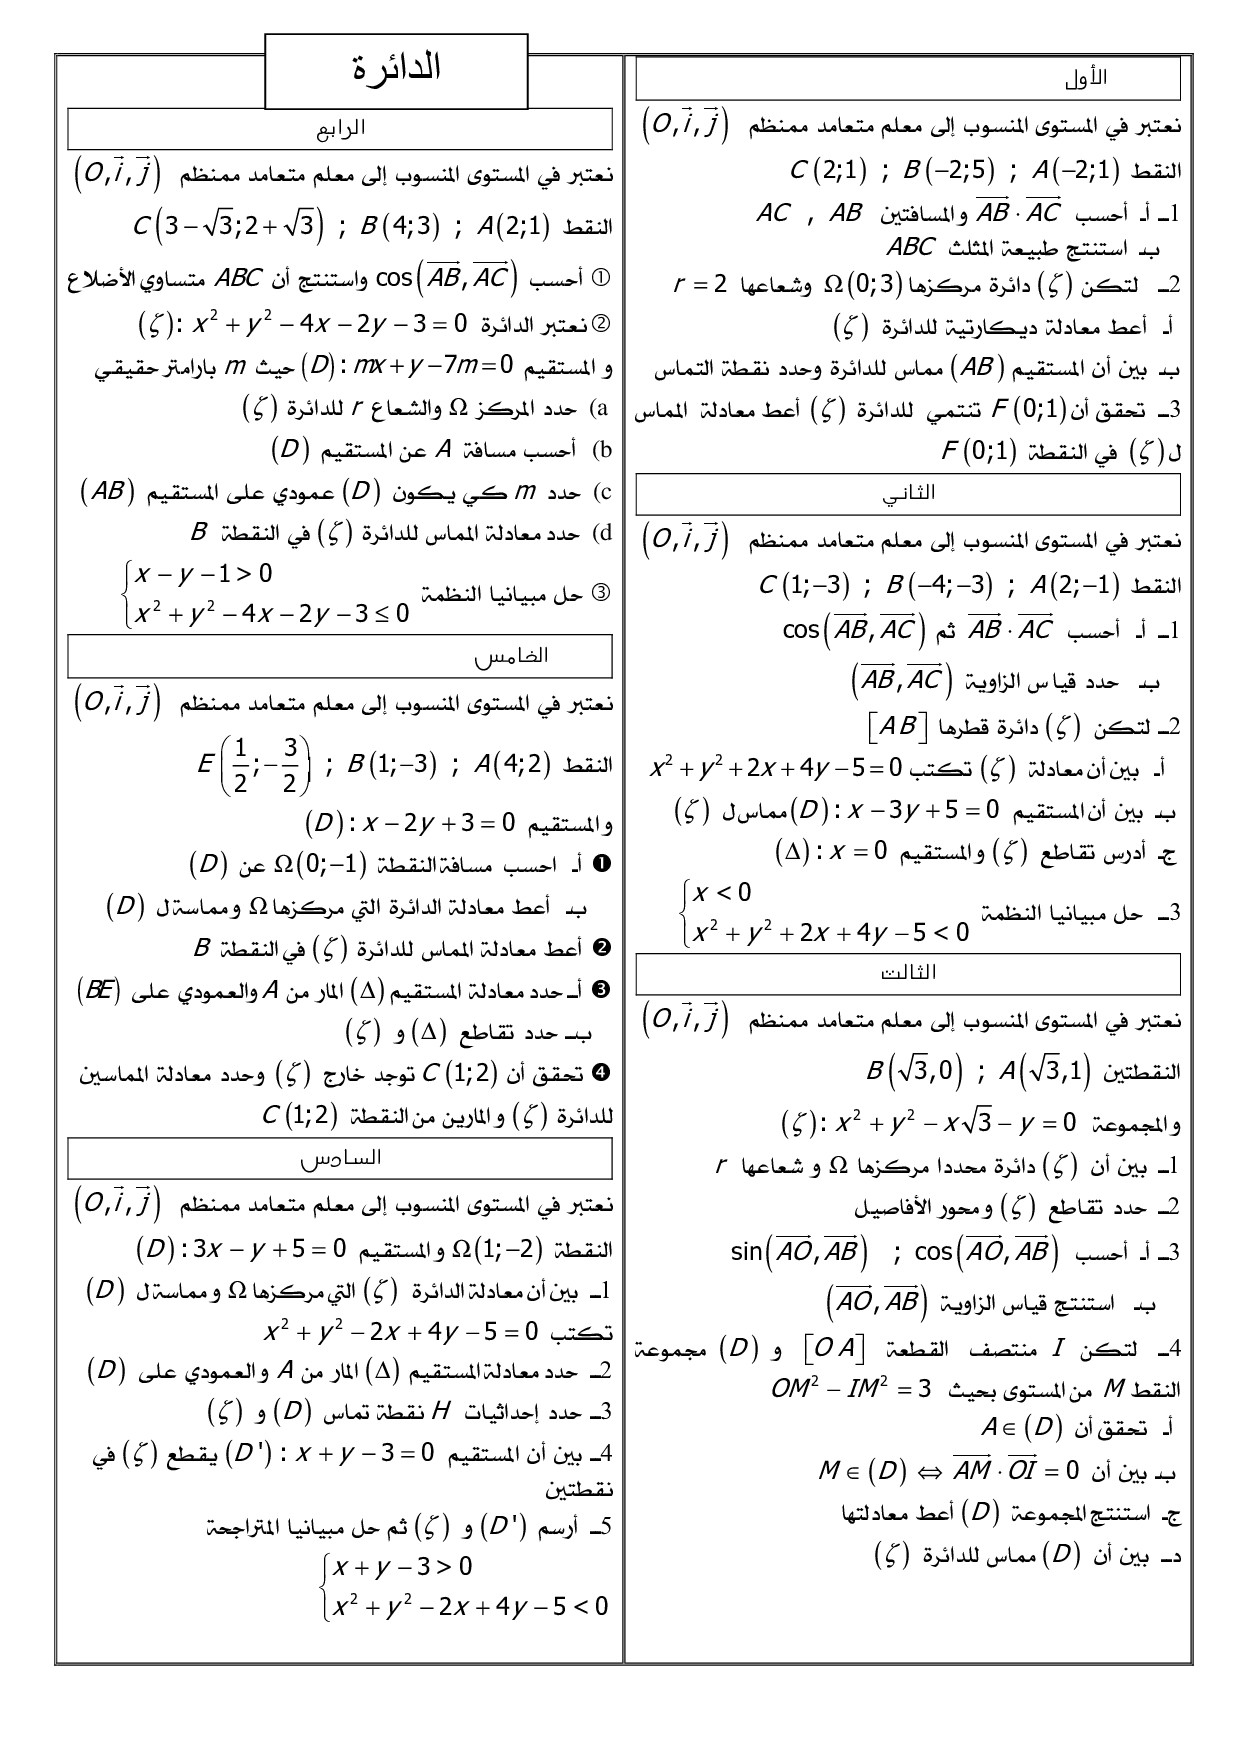 الدائرة
الأول
نعتبر في المستوى المنسوب إلى معلم متعامد ممنظم (O,i⃗,j⃗)
النقط A(−2;1) ; B(−2;5) ; C(2;1)
1ـ أـ أحسب AB⃗·AC⃗ والمسافتين AB , AC
بـ استنتج طبيعة المثلث ABC
2ـ لتكن (ζ) دائرة مركزها Ω(0;3) وشعاعها r = 2
أـ أعط معادلة ديكارتية للدائرة (ζ)
بـ بين أن المستقيم (AB) مماس للدائرة وحدد نقطة التماس
3ـ تحقق أن F(0;1) تنتمي للدائرة (ζ) أعط معادلة المماس
ل (ζ) في النقطة F(0;1)
الثاني
نعتبر في المستوى المنسوب إلى معلم متعامد ممنظم (O,i⃗,j⃗)
النقط A(2;−1) ; B(−4;−3) ; C(1;−3)
1ـ أـ أحسب AB⃗·AC⃗ ثم cos(AB⃗,AC⃗)
بـ حدد قياس الزاوية (AB⃗,AC⃗)
2ـ لتكن (ζ) دائرة قطرها [AB]
أـ بين أن معادلة (ζ) تكتب x² + y² + 2x + 4y − 5 = 0
بـ بين أن المستقيم (D): x − 3y + 5 = 0 مماس ل (ζ)
جـ أدرس تقاطع (ζ) والمستقيم (Δ): x = 0
3ـ حل مبيانيا النظمة { x < 0
x² + y² + 2x + 4y − 5 < 0
الثالث
نعتبر في المستوى المنسوب إلى معلم متعامد ممنظم (O,i⃗,j⃗)
النقطتين A(√3,1) ; B(√3,0)
والمجموعة (ζ): x² + y² − x√3 − y = 0
1ـ بين أن (ζ) دائرة محددا مركزها Ω و شعاعها r
2ـ حدد تقاطع (ζ) ومحور الأفاصيل
3ـ أـ أحسب cos(AO⃗,AB⃗) ; sin(AO⃗,AB⃗)
بـ استنتج قياس الزاوية (AO⃗,AB⃗)
4ـ لتكن I منتصف القطعة [OA] و (D) مجموعة
النقط M من المستوى بحيث OM² − IM² = 3
أـ تحقق أن A∈(D)
بـ بين أن M∈(D) ⇔ AM⃗·OI⃗ = 0
جـ استنتج المجموعة (D) أعط معادلتها
دـ بين أن (D) مماس للدائرة (ζ)
الرابع
نعتبر في المستوى المنسوب إلى معلم متعامد ممنظم (O,i⃗,j⃗)
النقط A(2;1) ; B(4;3) ; C(3−√3;2+√3)
① أحسب cos(AB⃗,AC⃗) واستنتج أن ABC متساوي الأضلاع
② نعتبر الدائرة (ζ): x² + y² − 4x − 2y − 3 = 0
و المستقيم (D): mx + y − 7m = 0 حيث m بارامتر حقيقي
a) حدد المركز Ω والشعاع r للدائرة (ζ)
b) أحسب مسافة A عن المستقيم (D)
c) حدد m كي يكون (D) عمودي على المستقيم (AB)
d) حدد معادلة المماس للدائرة (ζ) في النقطة B
③ حل مبيانيا النظمة { x − y − 1 > 0
x² + y² − 4x − 2y − 3 ≤ 0
الخامس
نعتبر في المستوى المنسوب إلى معلم متعامد ممنظم (O,i⃗,j⃗)
النقط A(4;2) ; B(1;−3) ; E(1/2;−3/2)
والمستقيم (D): x − 2y + 3 = 0
❶ أـ احسب مسافة النقطة Ω(0;−1) عن (D)
بـ أعط معادلة الدائرة التي مركزها Ω ومماسة ل (D)
❷ أعط معادلة المماس للدائرة (ζ) في النقطة B
❸ أـ حدد معادلة المستقيم (Δ) المار من A والعمودي على (BE)
بـ حدد تقاطع (Δ) و (ζ)
❹ تحقق أن C(1;2) توجد خارج (ζ) وحدد معادلة المماسين
للدائرة (ζ) و المارين من النقطة C(1;2)
السادس
نعتبر في المستوى المنسوب إلى معلم متعامد ممنظم (O,i⃗,j⃗)
النقطة Ω(1;−2) و المستقيم (D): 3x − y + 5 = 0
1ـ بين أن معادلة الدائرة (ζ) التي مركزها Ω و مماسة ل (D)
تكتب x² + y² − 2x + 4y − 5 = 0
2ـ حدد معادلة المستقيم (Δ) المار من A و العمودي على (D)
3ـ حدد إحداثيات H نقطة تماس (D) و (ζ)
4ـ بين أن المستقيم (D'): x + y − 3 = 0 يقطع (ζ) في
نقطتين
5ـ أرسم (D') و (ζ) ثم حل مبيانيا المتراجحة
{ x + y − 3 > 0
x² + y² − 2x + 4y − 5 < 0